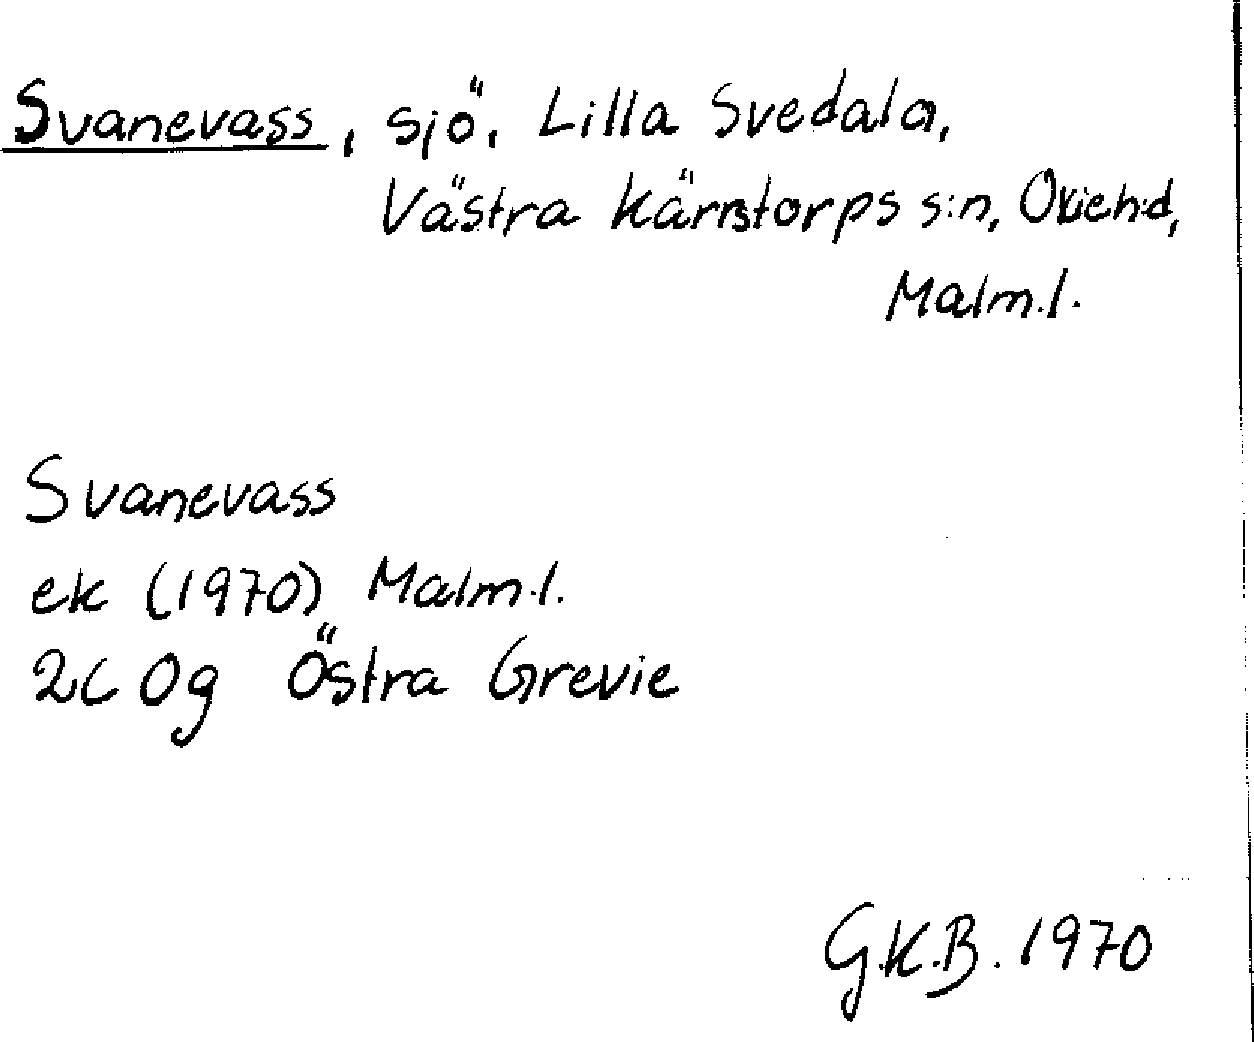 Svanevass, sjö, Lilla Svedala,
Västra Kärrstorps s:n, Oxie h:d,
Malm.l.
Svanevass
ek (1970) Malm.l.
2C 0g Östra Grevie
G.K.B. 1970